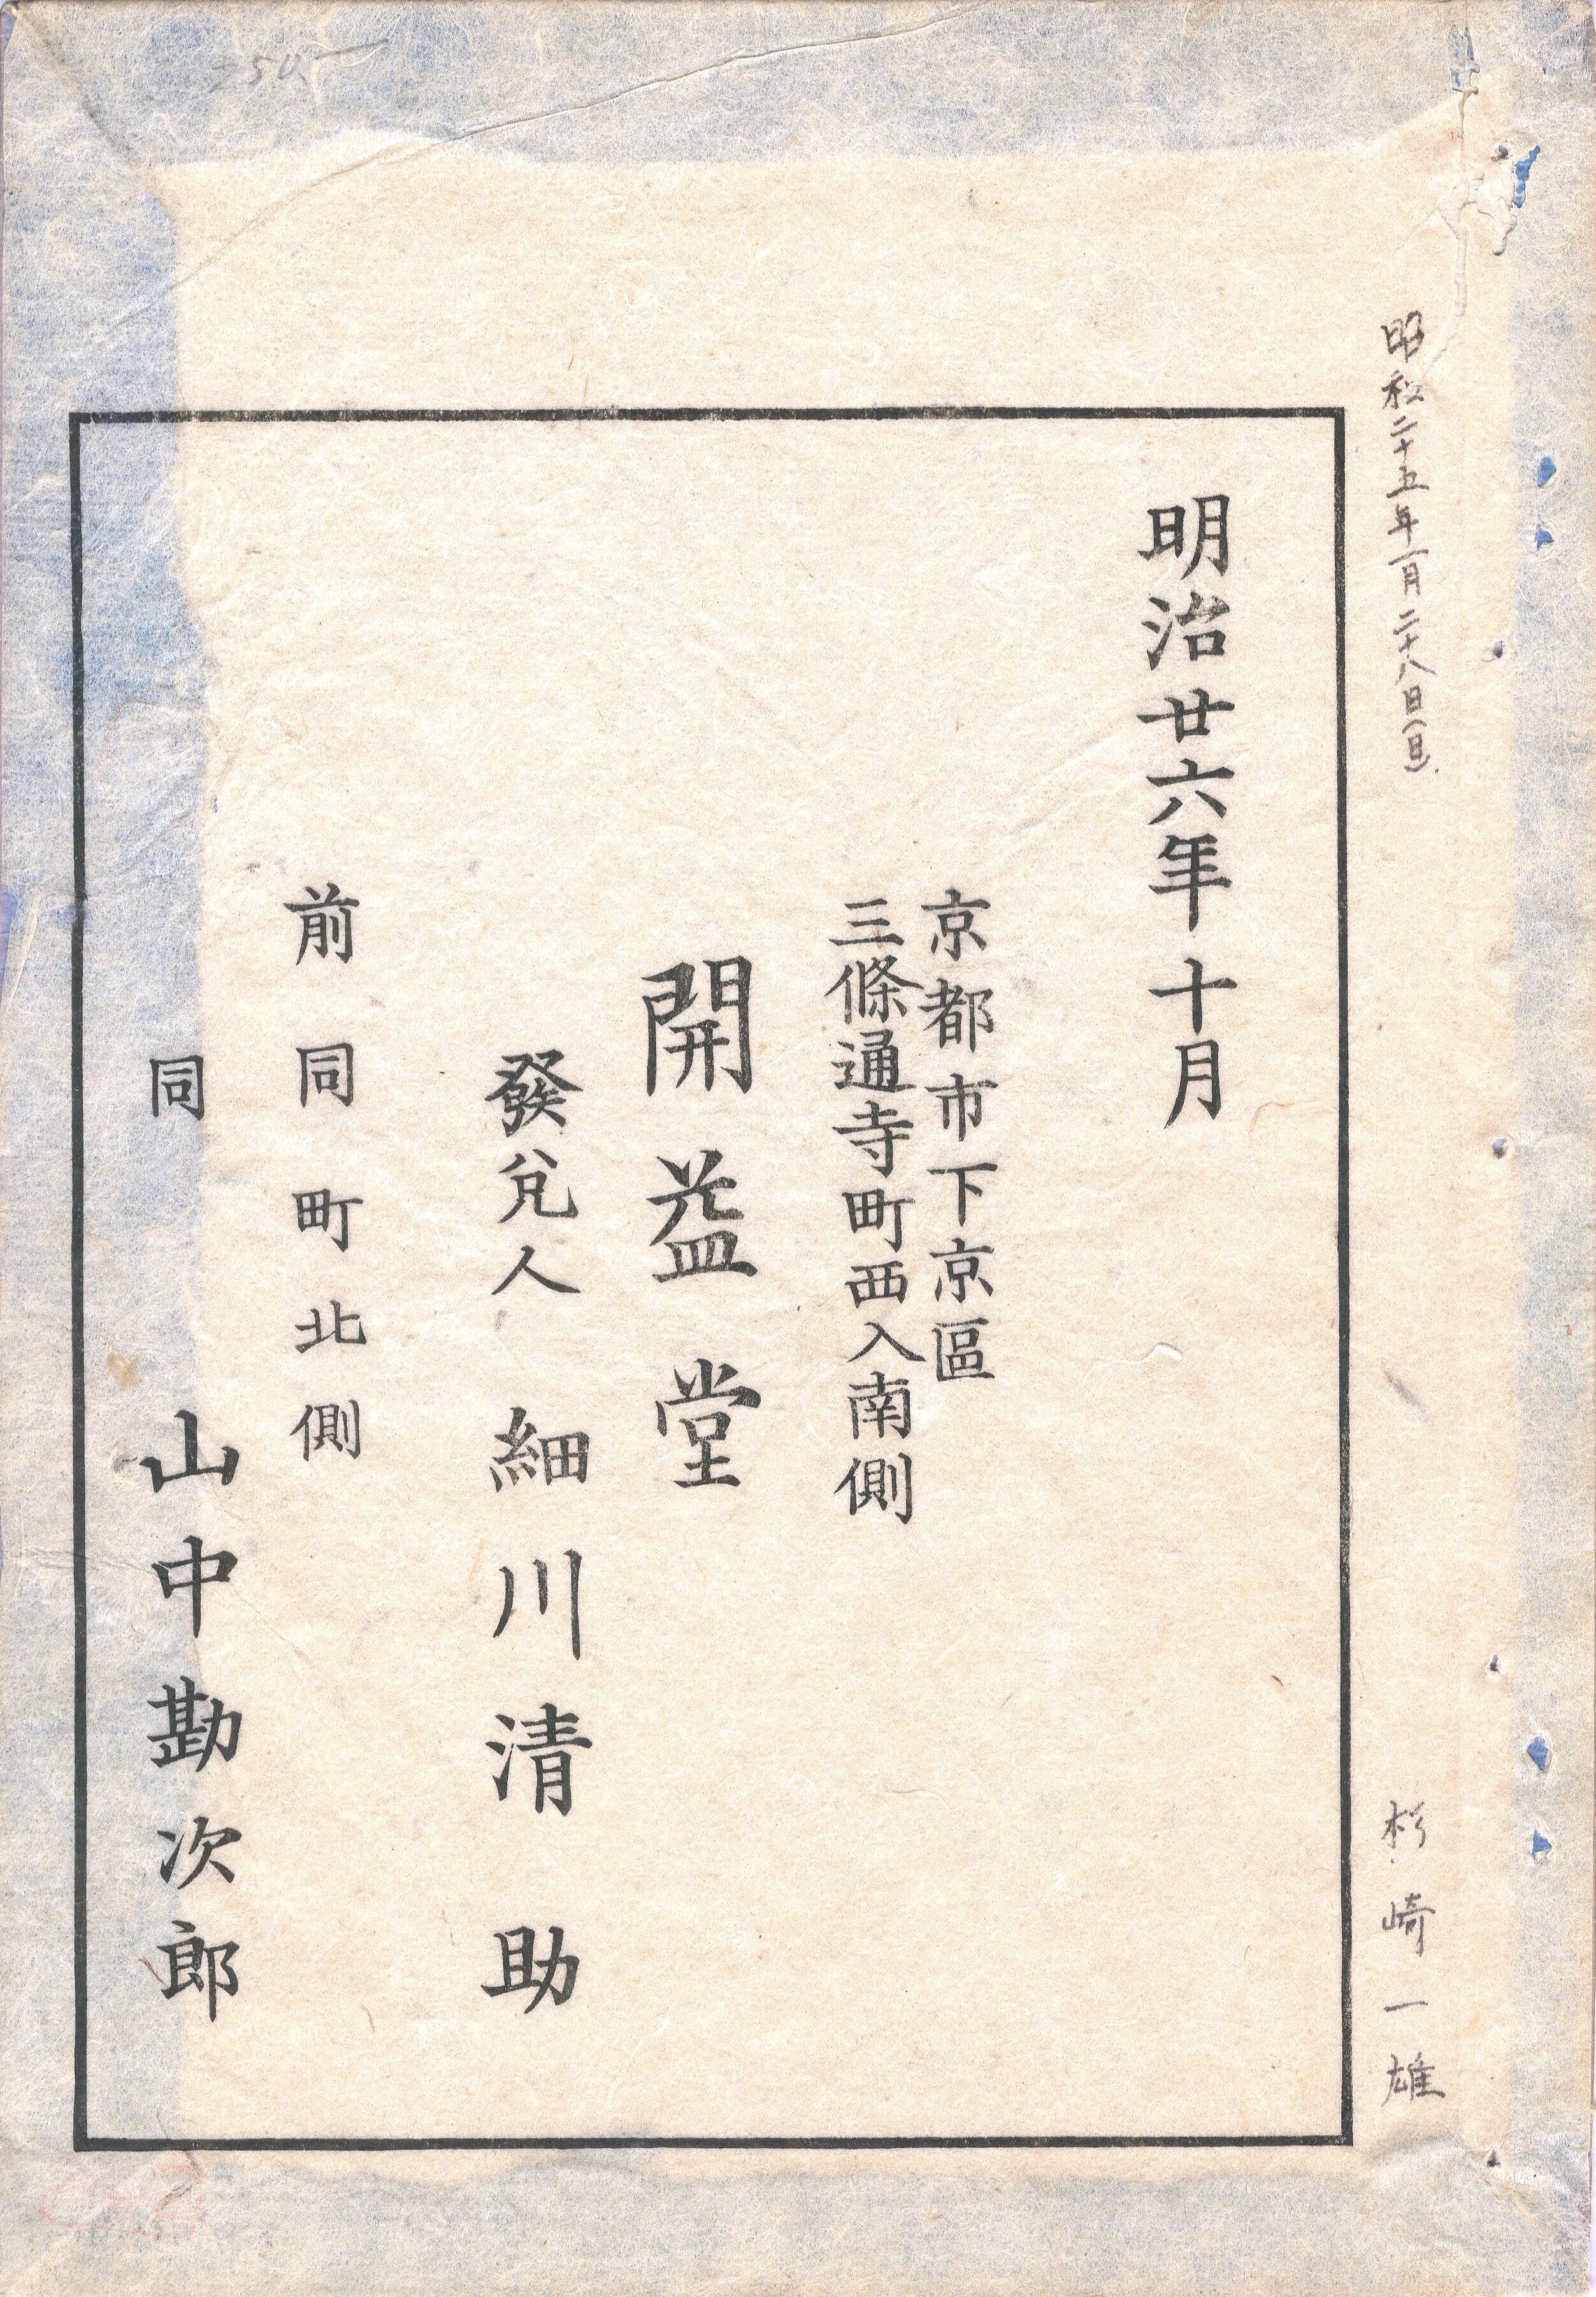 昭和二十五年一月二十八日(日).
杉崎一雄
明治廿六年十月
京都市下京區
三條通寺町西入南側
開益堂
發兌人 細川清助
前同町北側
同 山中勘次郎